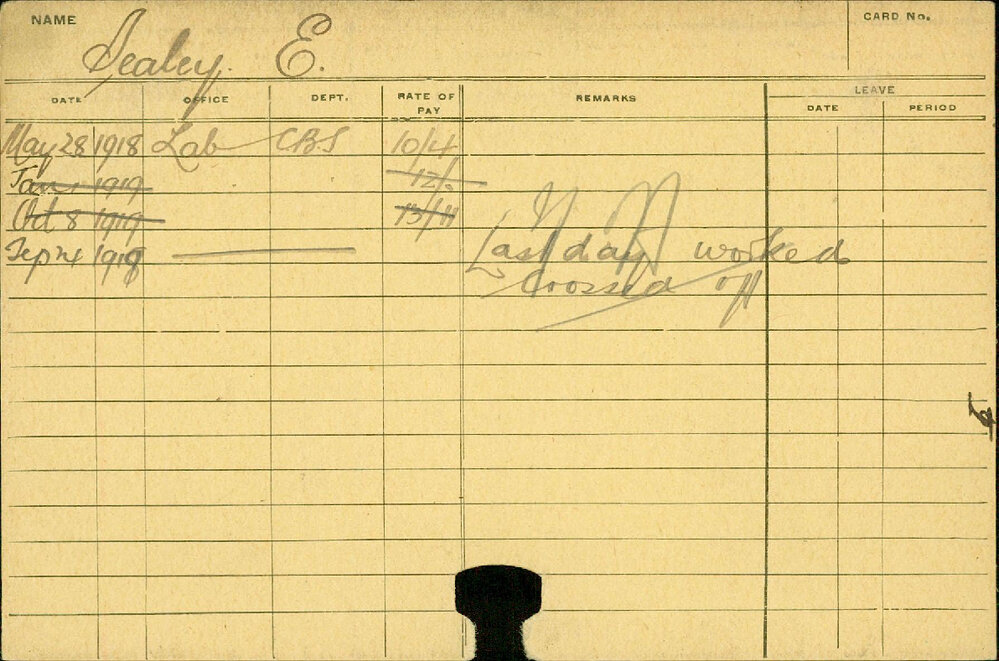 NAME Sealey. E. CARD No.
DATE OFFICE DEPT. RATE OF PAY REMARKS LEAVE
DATE PERIOD
May 28 1918 Lab CBS 10/4
Jan 1 1919 12/-
Oct 8 1919 13/11
Sep 24 1918 Last day worked
Crossed off